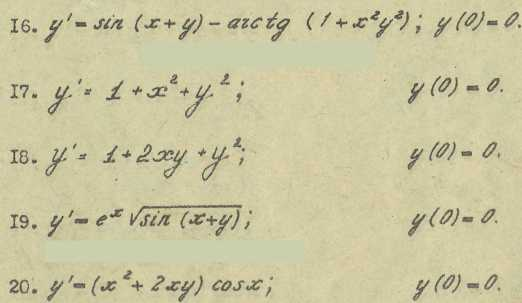 I6. y' = sin (x+y) - arctg (1+x²y²); y(0) = 0.
I7. y' = 1 + x² + y²; y(0) = 0.
I8. y' = 1 + 2xy + y²; y(0) = 0.
I9. y' = eˣ √sin (x+y); y(0) = 0.
20. y' = (x² + 2xy) cosx; y(0) = 0.